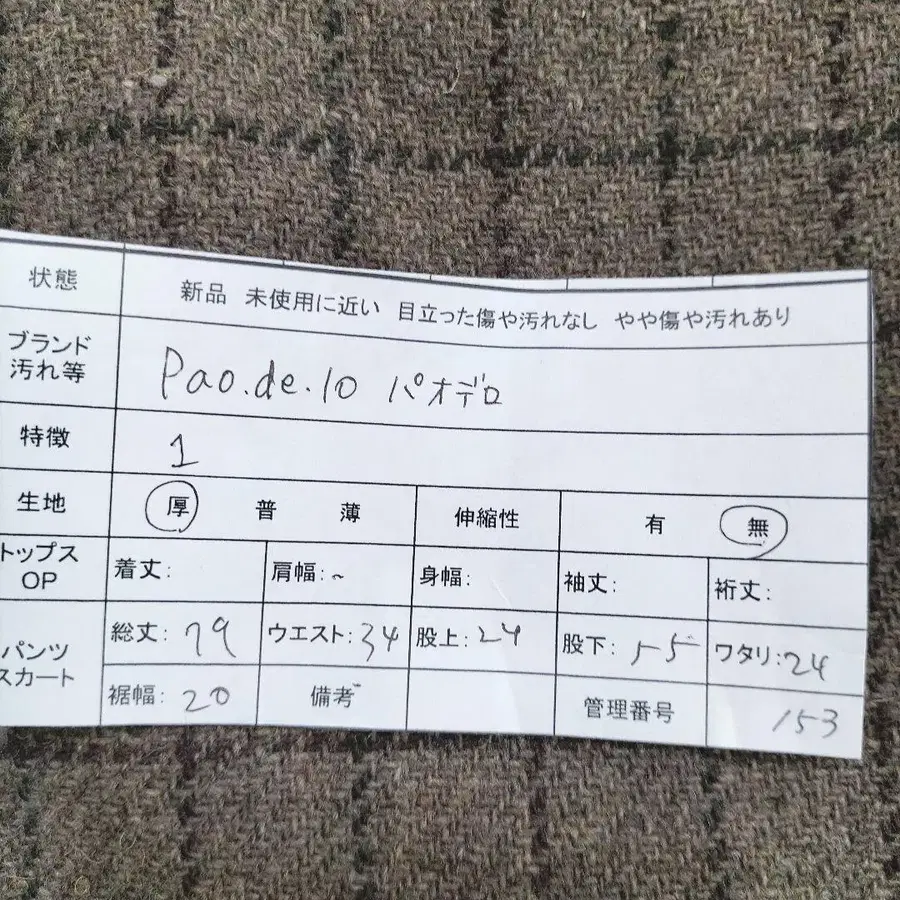 状態 新品 未使用に近い 目立った傷や汚れなし やや傷や汚れあり
ブランド
汚れ等 Pao.de.lo パオデロ
特徴 1
生地 厚 普 薄 伸縮性 有 無
トップス
OP 着丈: 肩幅:~ 身幅: 袖丈: 裄丈:
パンツ
スカート 総丈: 79 ウエスト: 34 股上: 24 股下: 55 ワタリ: 24
裾幅: 20 備考 管理番号 153